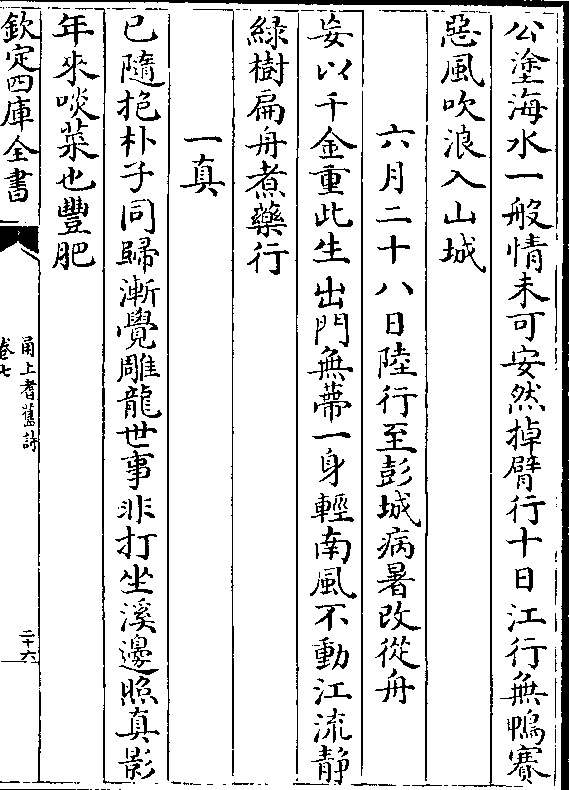 公塗海水一般情未可安然掉臂行十日江行無鴨賽
惡風吹浪入山城
六月二十八日陸行至彭城病暑改從舟
妄以千金重此生出門無蔕一身輕南風不動江流静
緑樹扁舟煮藥行
一真
已隨抱朴子同歸漸覺雕龍世事非打坐溪邊照真影
年來啖菜也豐肥
欽定四庫全書
甬上耆舊詩
卷七
二十六